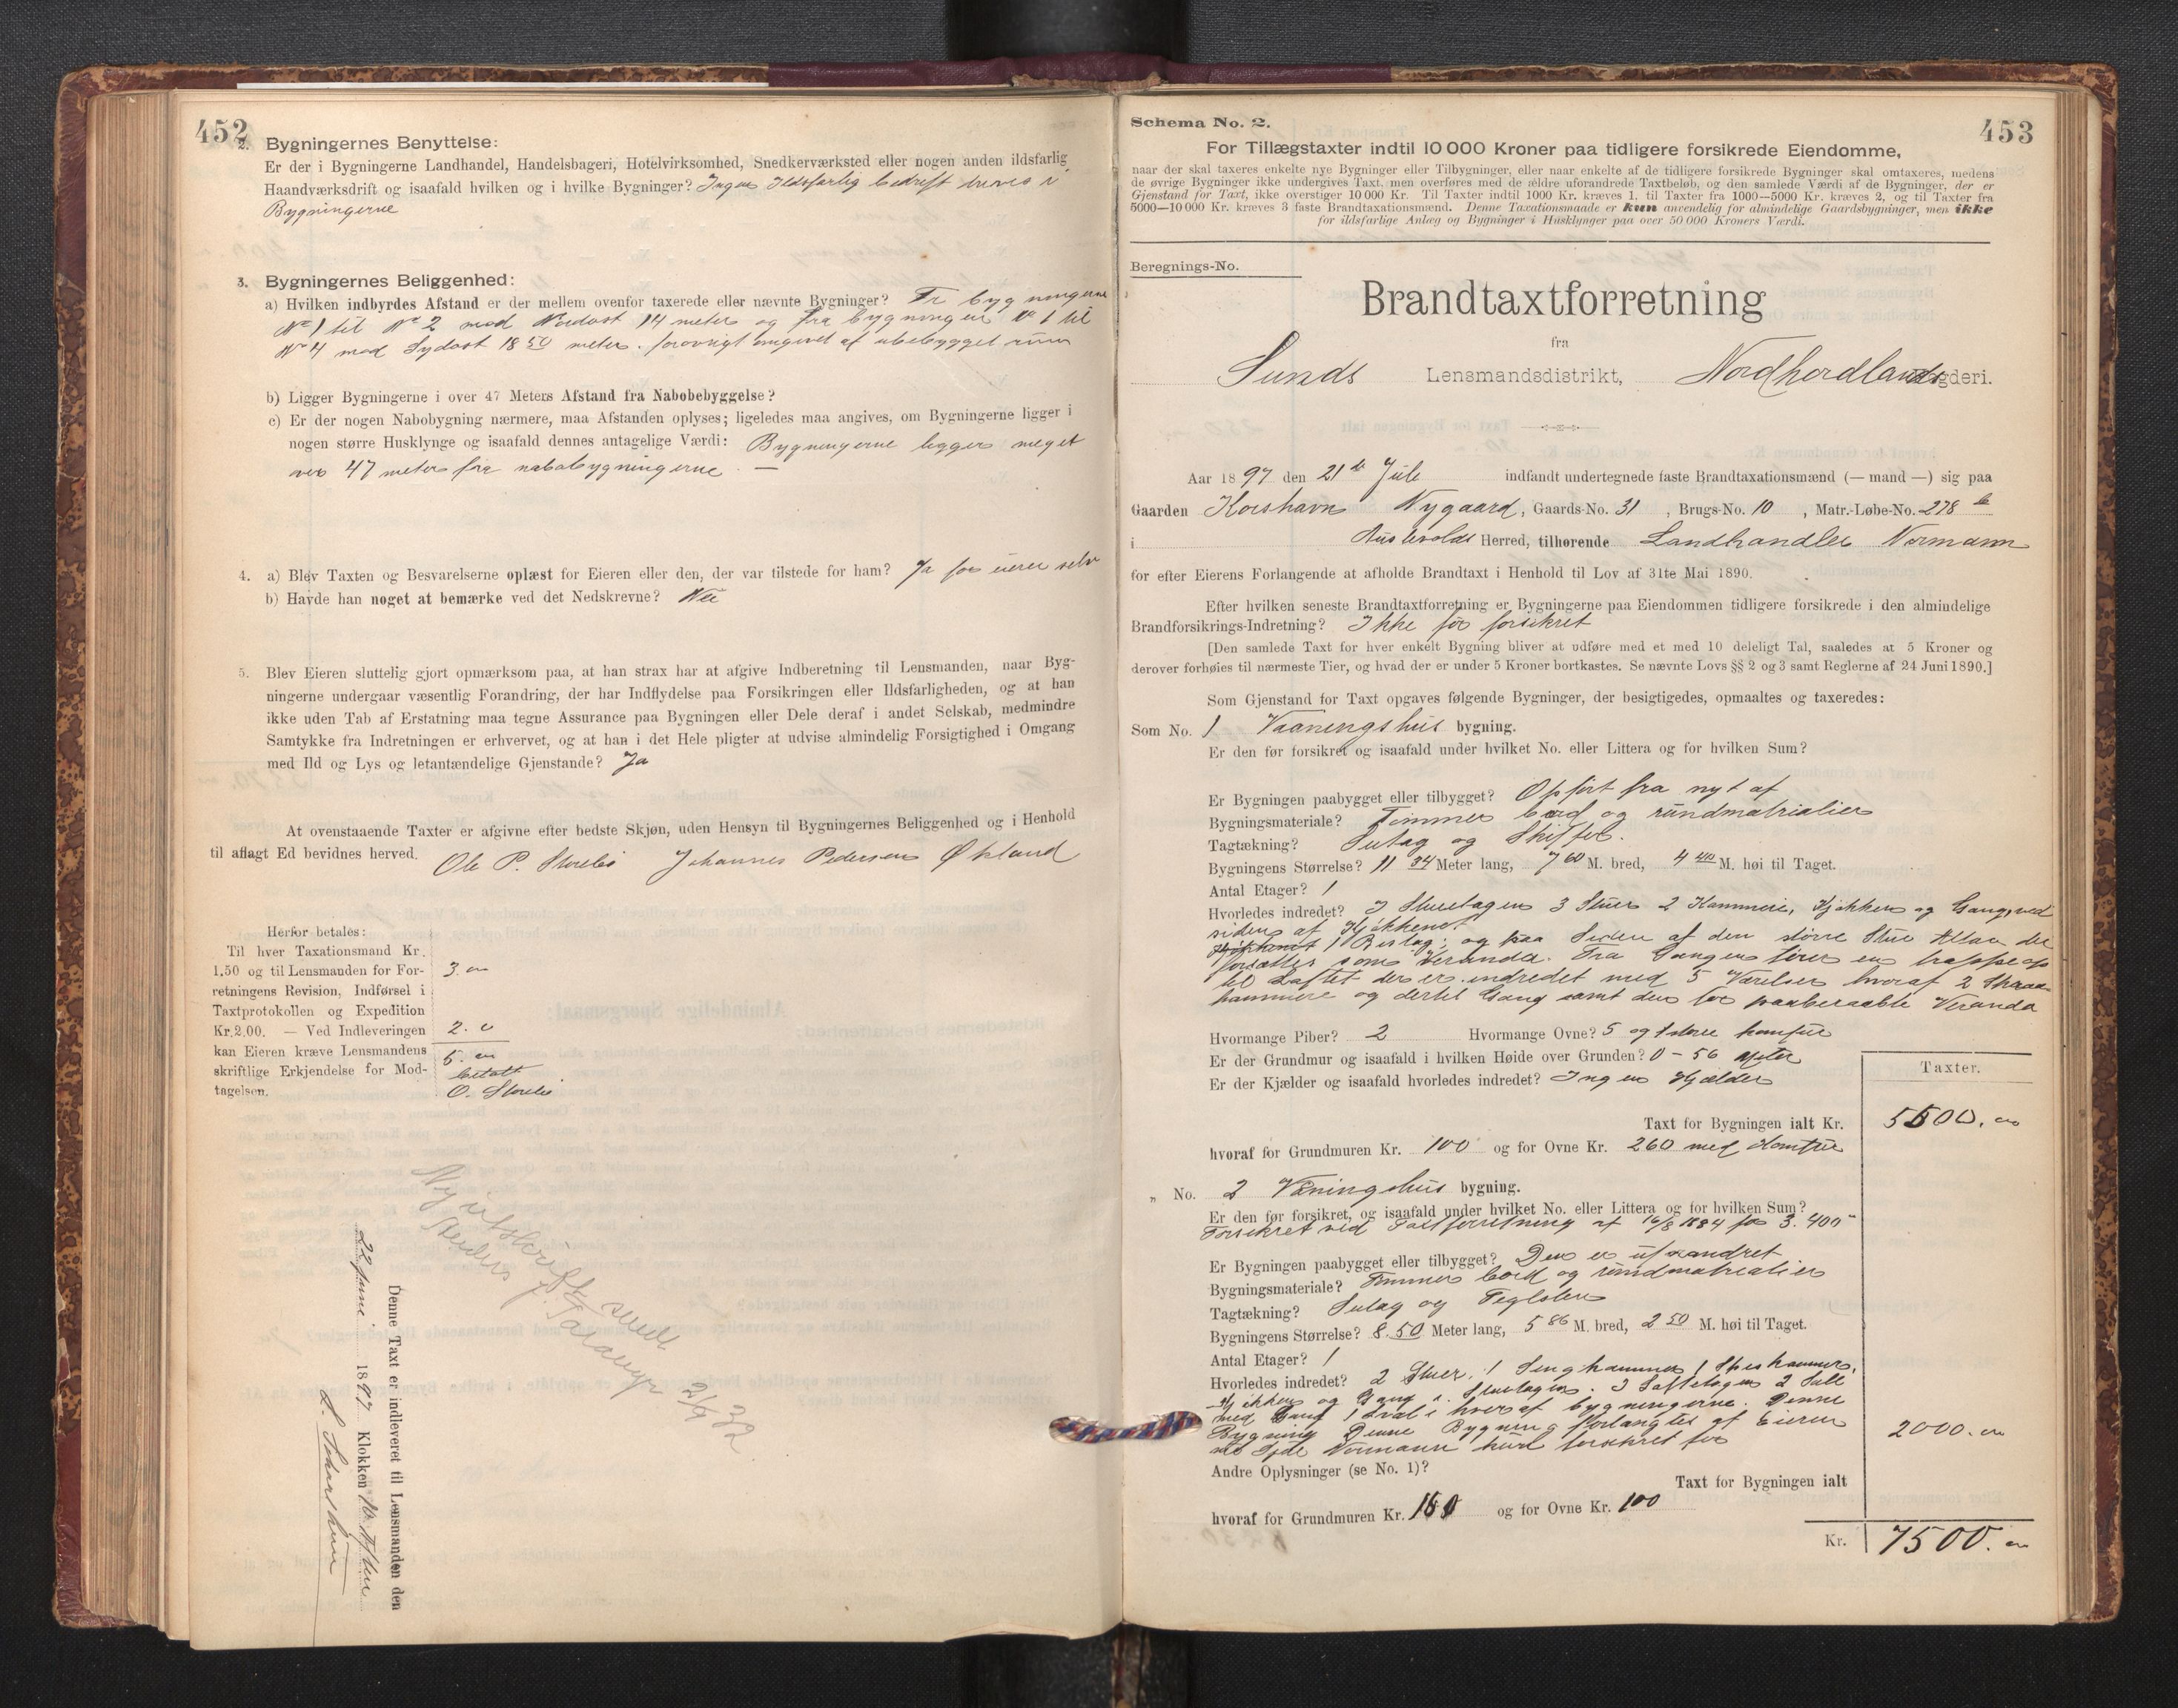 452
2. Bygningernes Benyttelse:
Er der i Bygningerne Landhandel, Handelsbageri, Hotelvirksomhed, Snedkerværksted eller nogen anden ildsfarlig
Haandværksdrift og isaafald hvilken og i hvilke Bygninger? Ingen Ildsfarlig bedrift drives i
Bygningerne
3. Bygningernes Beliggenhed:
a) Hvilken indbyrdes Afstand er der mellem ovenfor taxerede eller nævnte Bygninger? Fr bygningerne
No 1 til No 2 mod Nordost 14 meter og fra bygningen No 1 til
No 4 mod Sydost 18 50 meter. forøvrigt omgivet af ubebygget rum
b) Ligger Bygningerne i over 47 Meters Afstand fra Nabobebyggelse?
c) Er der nogen Nabobygning nærmere, maa Afstanden oplyses; ligeledes maa angives, om Bygningerne ligger i
nogen større Husklynge og isaafald dennes antagelige Værdi: Bygningerne ligger meget
over 47 meter fra nabobygningerne. —
4. a) Blev Taxten og Besvarelserne oplæst for Eieren eller den, der var tilstede for ham? Ja for eieren selv
b) Havde han noget at bemærke ved det Nedskrevne? Nei
5. Blev Eieren sluttelig gjort opmærksom paa, at han strax har at afgive Indberetning til Lensmanden, naar Byg-
ningerne undergaar væsentlig Forandring, der har Indflydelse paa Forsikringen eller Ildsfarligheden, og at han
ikke uden Tab af Erstatning maa tegne Assurance paa Bygningen eller Dele deraf i andet Selskab, medmindre
Samtykke fra Indretningen er erhvervet, og at han i det Hele pligter at udvise almindelig Forsigtighed i Omgang
med Ild og Lys og letantændelige Gjenstande? Ja
At ovenstaaende Taxter er afgivne efter bedste Skjøn, uden Hensyn til Bygningernes Beliggenhed og i Henhold
til aflagt Ed bevidnes herved.
Ole P. Storebø Johannes Pedersen Økland
Herfor betales:
Til hver Taxationsmand Kr.
1,50 og til Lensmanden for For-
retningens Revision, Indførsel i
Taxtprotokollen og Expedition
Kr. 2.00. — Ved Indleveringen
kan Eieren kræve Lensmandens
skriftlige Erkjendelse for Mod-
tagelsen.
3.
2.
5.
betalt
O. Storebø
Ny utskrift sendt
2/9 32
Denne Taxt er indleveret til Lensmanden den
22 Juni 1897 Klokken 10 Aften
453
Schema No. 2.
For Tillægstaxter indtil 10 000 Kroner paa tidligere forsikrede Eiendomme,
naar der skal taxeres enkelte nye Bygninger eller Tilbygninger, eller naar enkelte af de tidligere forsikrede Bygninger skal omtaxeres, medens
de øvrige Bygninger ikke undergives Taxt, men overføres med de ældre uforandrede Taxtbeløb, og den samlede Værdi af de Bygninger, der er
Gjenstand for Taxt, ikke overstiger 10 000 Kr. Til Taxter indtil 1000 Kr. kræves 1, til Taxter fra 1000—5000 Kr. kræves 2, og til Taxter fra
5000—10 000 Kr. kræves 3 faste Brandtaxationsmænd. Denne Taxationsmaade er kun anvendelig for almindelige Gaardsbygninger, men ikke
for ildsfarlige Anlæg og Bygninger i Husklynger paa over 50 000 Kroners Værdi.
Beregnings-No.
Brandtaxtforretning
fra
Sunds Lensmandsdistrikt, Nordhordlands Fogderi.
Aar 1897 den 21de Juli indfandt undertegnede faste Brandtaxationsmænd (— mand —) sig paa
Gaarden Korshavn Nygaard, Gaards-No. 31, Brugs-No. 10, Matr.-Løbe-No. 278 b
i Austevolds Herred, tilhørende Landhandler Normann
for efter Eierens Forlangende at afholde Brandtaxt i Henhold til Lov af 31te Mai 1890.
Efter hvilken seneste Brandtaxtforretning er Bygningerne paa Eiendommen tidligere forsikrede i den almindelige
Brandforsikrings-Indretning? Ikke før forsikret
[Den samlede Taxt for hver enkelt Bygning bliver at udføre med et med 10 deleligt Tal, saaledes at 5 Kroner og
derover forhøies til nærmeste Tier, og hvad der er under 5 Kroner bortkastes. Se nævnte Lovs §§ 2 og 3 samt Reglerne af 24 Juni 1890.]
Som Gjenstand for Taxt opgaves følgende Bygninger, der besigtigedes, opmaaltes og taxeredes:
Som No. 1 Vaaningshus bygning.
Er den før forsikret og isaafald under hvilket No. eller Littera og for hvilken Sum?
Er Bygningen paabygget eller tilbygget? Opført fra nyt af
Bygningsmateriale? Tømmer bord og rundmatrialier
Tagtækning? Sutag og Skiffer.
Bygningens Størrelse? 11 34 Meter lang, 7 60 M. bred, 4 40 M. høi til Taget.
Antal Etager? 1
Hvorledes indredet? I Stuetagen 3 Stuer 2 Kammere, Kjøkken og Gang, ved
siden af Kjøkkenet
1 Bislag; og paa Siden af den større Stue Altan der
forsættes som Veranda. Fra Gangen fører en trappe op
til Loftet der er indredet med 5 Værelser hvoraf 2 Skraa-
kammere og dertil Gang samt den før paaberaabte Veranda
Hvormange Piber? 2 Hvormange Ovne? 5 og 1 større komfur
Er der Grundmur og isaafald i hvilken Høide over Grunden? 0 - 56 Meter
Er der Kjælder og isaafald hvorledes indredet? Ingen Kjælder
Taxter.
Taxt for Bygningen ialt Kr. 5500.
hvoraf for Grundmuren Kr. 100 og for Ovne Kr. 260 med Komfur
„ No. 2 Vaaningshus bygning.
Er den før forsikret, og isaafald under hvilket No. eller Littera og for hvilken Sum?
Forsikret ved Taxtforretning af 16/8 1884 for 3.400
Er Bygningen paabygget eller tilbygget? Den er uforandret
Bygningsmateriale? Tømmer bord og rundmatrialier
Tagtækning? Sutag og Teglsten
Bygningens Størrelse? 8.50 Meter lang, 5 86 M. bred, 2 50 M. høi til Taget.
Antal Etager? 1
Hvorledes indredet? 2 Stuer, 1 Sengkammer 1 Spiskammer,
Kjøkken og Gang i Stuetagen. I Loftetagen 2 Sale
med Gang 1 Sval i hver af bygningerne. Denne
Bygning Denne Bygning forlangtes af Eieren
Normann kun forsikret for
2000.
Andre Oplysninger (se No. 1)?
Taxt for Bygningen ialt
hvoraf for Grundmuren Kr. og for Ovne Kr. 100
Kr. 7500.